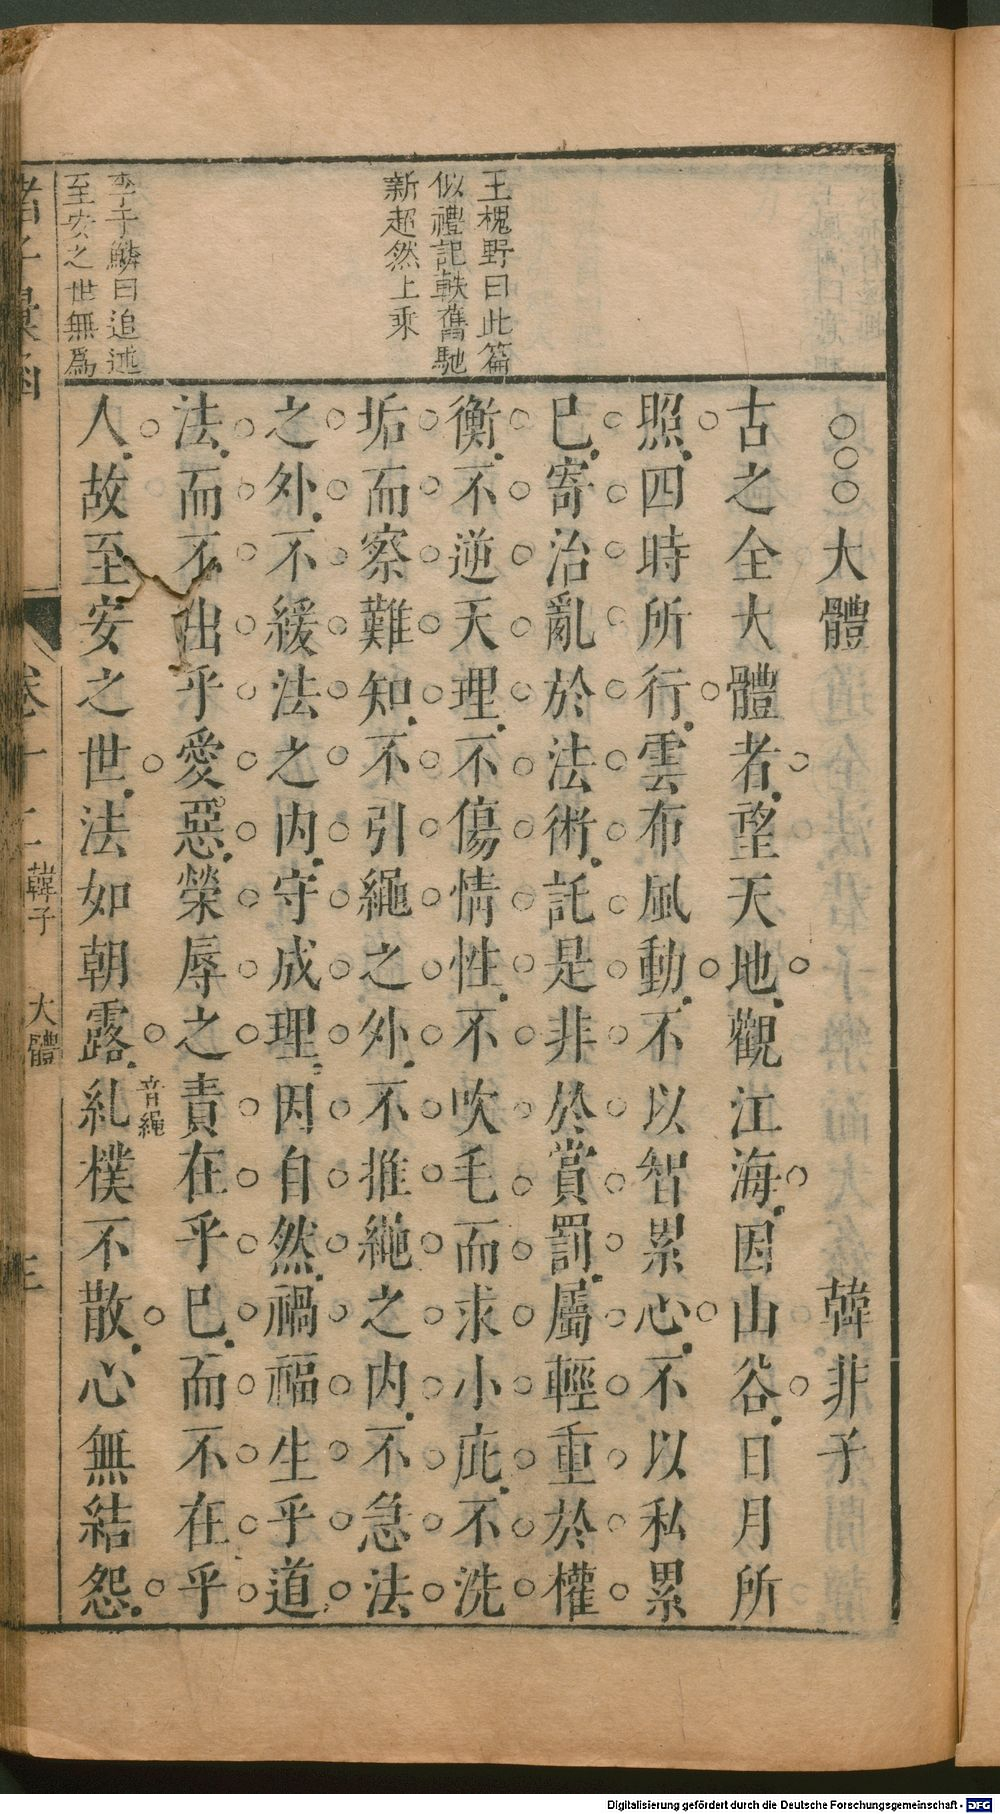 王槐野曰此篇
似禮記軼舊馳
新超然上乘
李于鱗曰追述
至安之世無為
○○○大體 韓非子
古之全大體者望天地觀江海因山谷日月所
照四時所行雲布風動不以智累心不以私累
已寄治亂於法術託是非於賞罰屬輕重於權
衡不逆天理不傷情性不吹毛而求小疵不洗
垢而察難知不引繩之外不推繩之內不急法
之外不緩法之內守成理因自然禍福生乎道
法而不出乎愛惡榮辱之責在乎已而不在乎
人故至安之世法如朝露糺樸不散心無結怨
音繩
諸子彙函
卷十二
韓子 大體
Digitalisierung gefördert durch die Deutsche Forschungsgemeinschaft - DFG